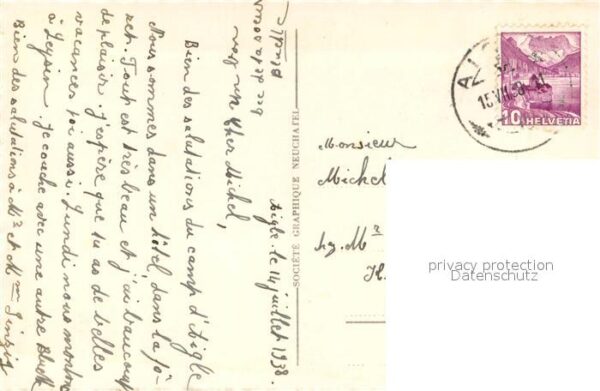 Aigle. le 14 juillet 1938.
Cher Michel,
Bien des salutations du camp d'Aigle
Nous sommes dans un hôtel, dans la fo-
ret. Tout est très beau et j'ai beaucoup
de plaisir. J'espère que tu as de belles
vacances, toi aussi. Lundi nous montons
à Leysin. Je couche avec une autre
Bien des salutations à Mr et Mme
SOCIÉTÉ GRAPHIQUE NEUCHATEL
Monsieur
Michel
Mr
10 HELVETIA
privacy protection
Datenschutz